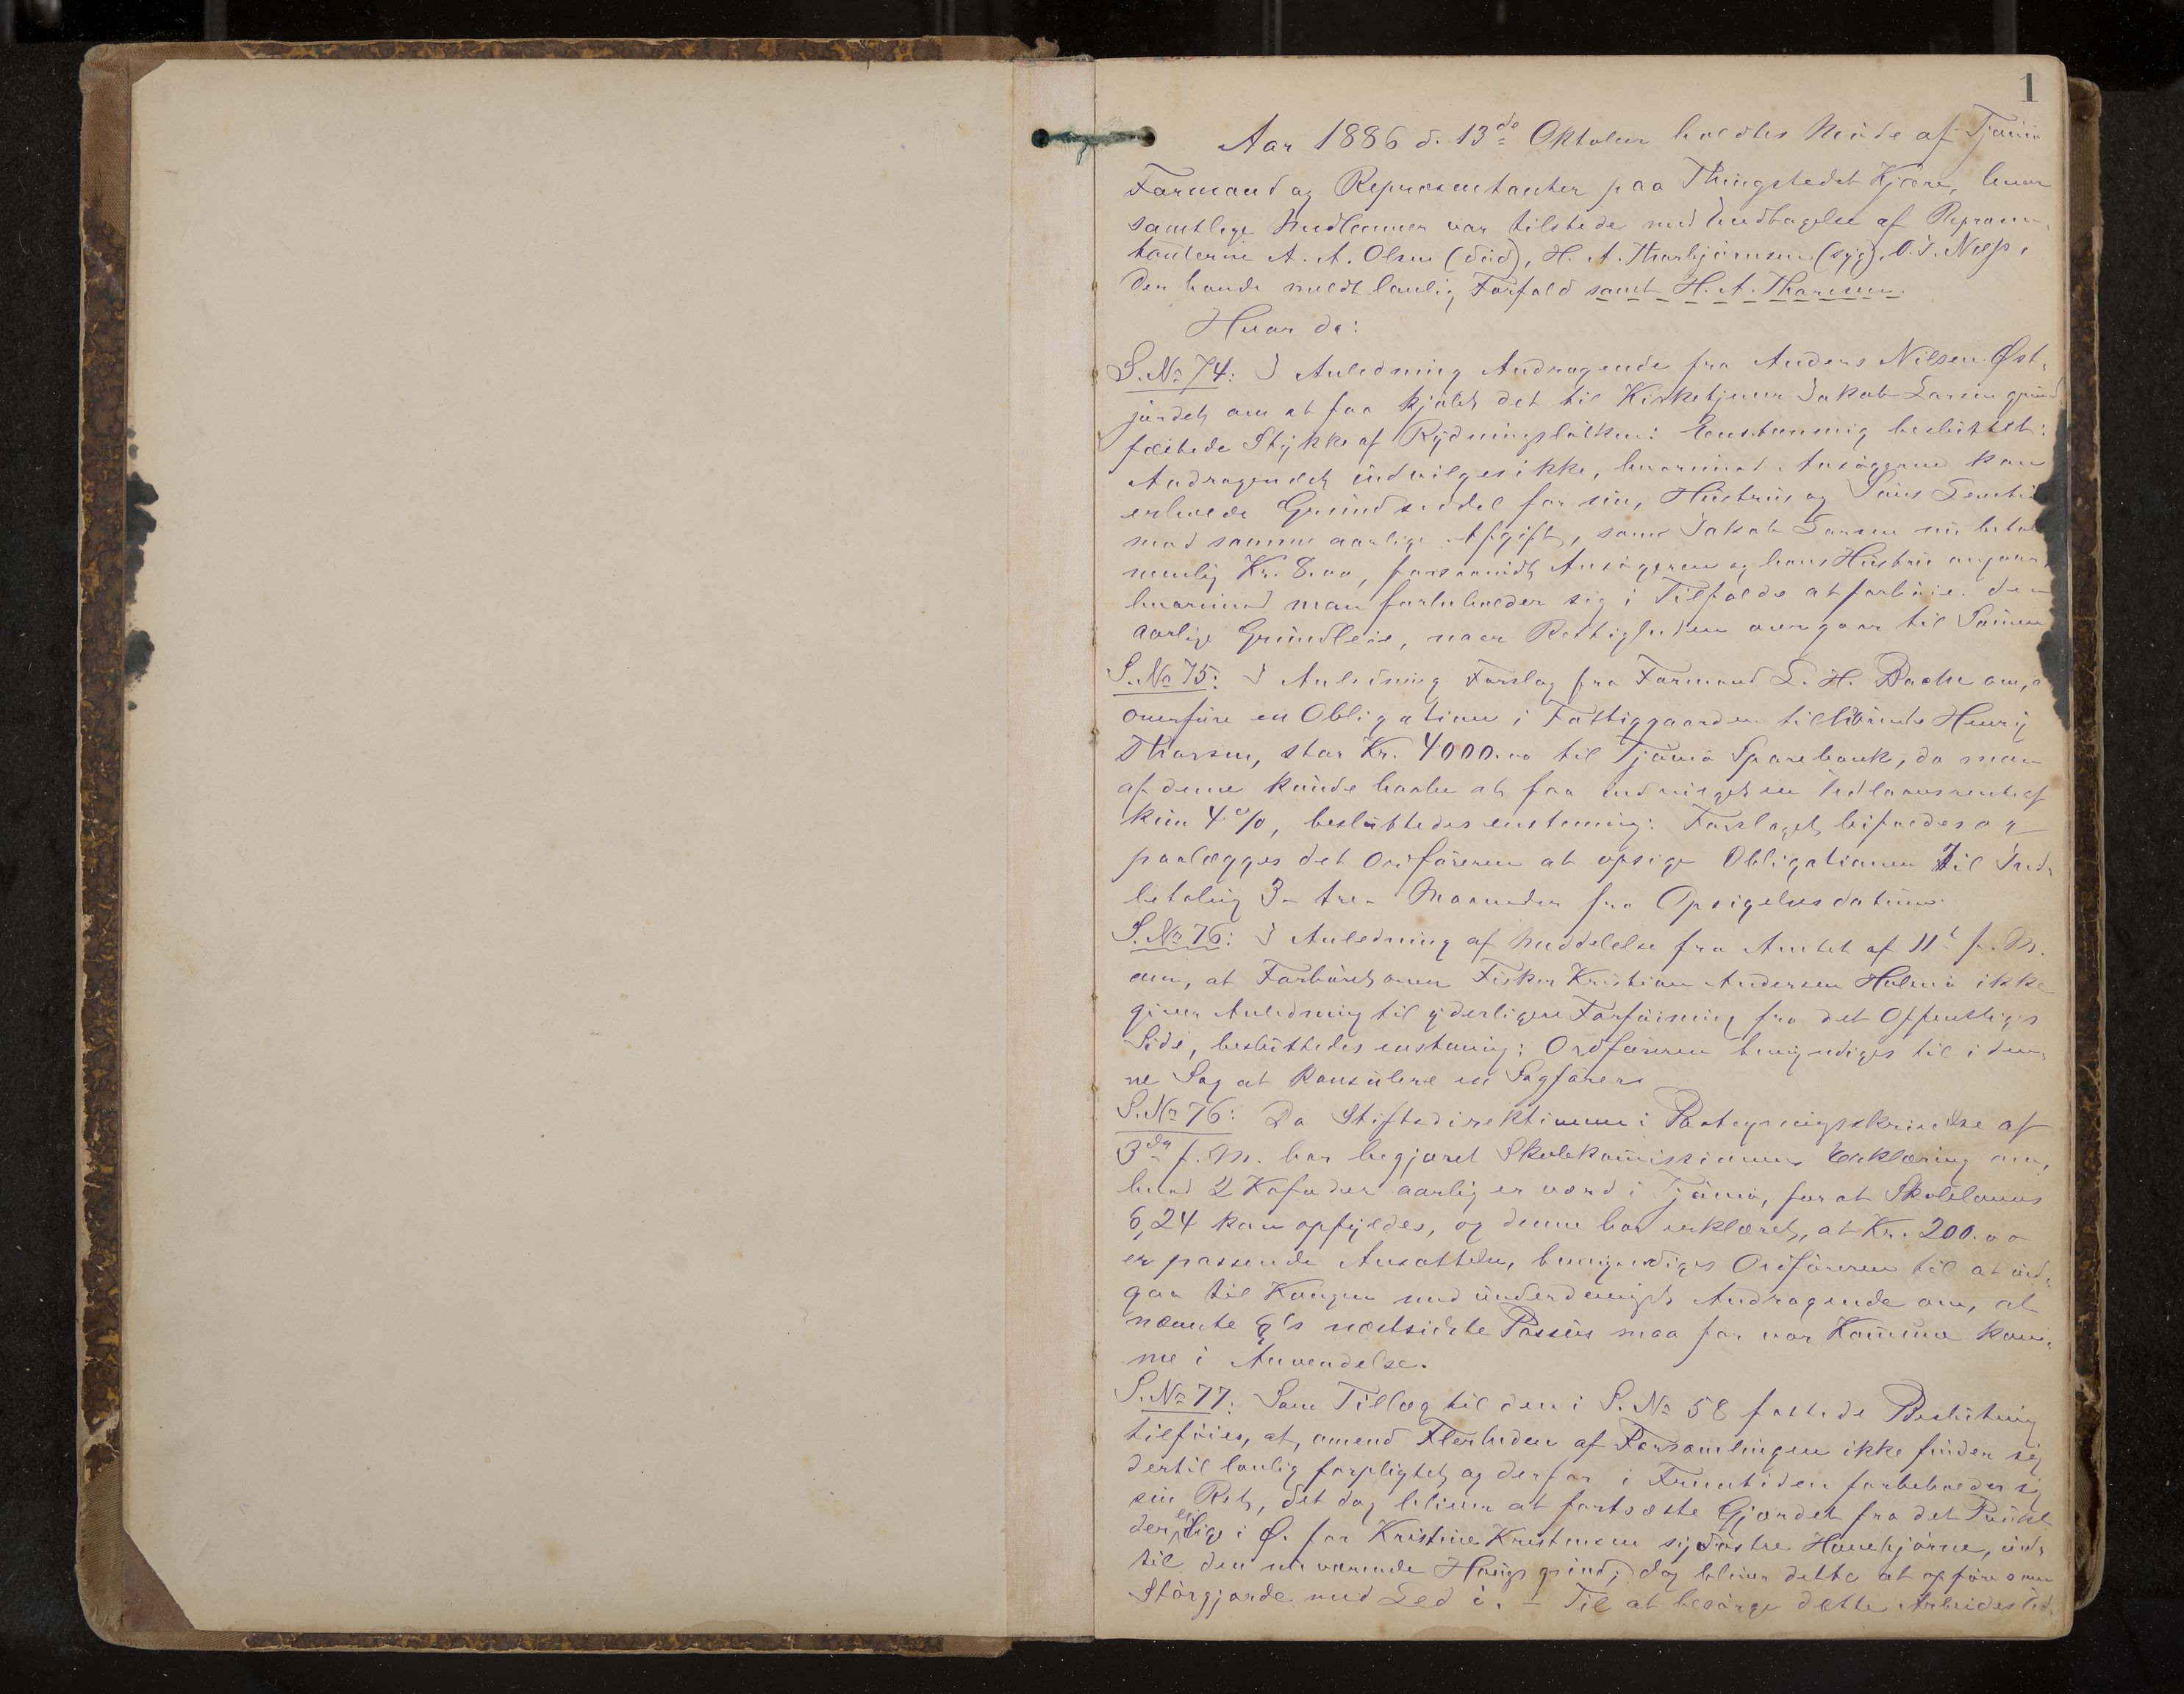 1
Aar 1886 d. 13de Oktober holdtes Möde af Tjömö
Formænd og Repræsentanter paa Thingstedet Kjære, hvor
samtlige Medlemmer var tilstede med Undtagelse af Repræsen-
tanterne A. A. Olsen (död), H. A. Thorbjörnsen (syg), O. J.
der havde meldt lovlig Forfald samt H. A. Thoresen.
Hvor da:
S. No 74: I Anledning Andragende fra Anders Nilsen Øst-
jordet om at faa kjöbt det til Kirketjener Jakob Larsen
fæstede Stykke af Rydningslökken: Eenstemmig besluttet:
Andragendet indvilges ikke, hvorimod Ansögeren kan
erholde Grundseddel for sin, Hustrus og Söns Levetid
mod samme aarlige Afgift, som Jakob Larsen nu betal
nemlig Kr. 8.00, forsaavidt Ansögeren og hans Hustru angaar,
hvorimod man forbeholder sig i Tilfælde at forhöie den
aarlige Grundleie, naar Rettigheden overgaar til Sönnen
S. No 75: I Anledning Forslag fra Formand L. H. Bache om, a
overföre en Obligation i Fattiggaarden tilhörende Henrig
Thorsen, stor Kr. 4000.00 til Tjömö Sparebank, da man
af denne kunde haabe at faa indvilget en Udlaansrente af
kun 4 %, besluttedes enstemig: Forslaget bifaldes og
paalægges det Ordföreren at opsige Obligationen til Ind-
betaling 3 - tre - Maaneder fra Opsigelsesdatum.
S. No 76: I Anledning af Meddelelse fra Amtet af 11t f. M.
om, at Forhöret over Fisker Kristian Andersen Holmö ikke
giver Anledning til yderligere Forföining fra det Offentliges
Side, besluttedes enstemig: Ordföreren bemyndiges til i den-
ne Sag at konsulere en Sagförer.
S. No 76: Da Stiftsdirektionen i Paategningsskrivelse af
3die f. M. har begjæret Skolekommissionens Erklæring om,
hvad 2 Kofoder aarlig er værd i Tjömö, for at Skolelovens
§ 24 kan opfyldes, og denne har erklæret, at Kr. 200.00
er passende Ansættelse, bemyndiges Ordföreren til at ind-
gaa til Kongen med underdanigst Andragende om, at
nævnte §'s næstsidste Passus maa for vor Komune kom-
me i Anvendelse.
S. No 77: Som Tillæg til den i S. No 58 fattede Beslutning
tilföies, at, omend Flerheden af Forsamlingen ikke finder sig
dertil lovlig forpligtet og derfor i Fremtiden forbeholder sig
sin Ret, det dog bliver at fortsætte Gjærdet fra det Punkt
der ei lige i Ø. for Kristine Kristensens sydöstre Havehjörne, ind-
til den nuværende Haugsgrind; dog bliver dette at opföre som
Störgjærde med Led i. - Til at besörge dette Arbeides Ud-